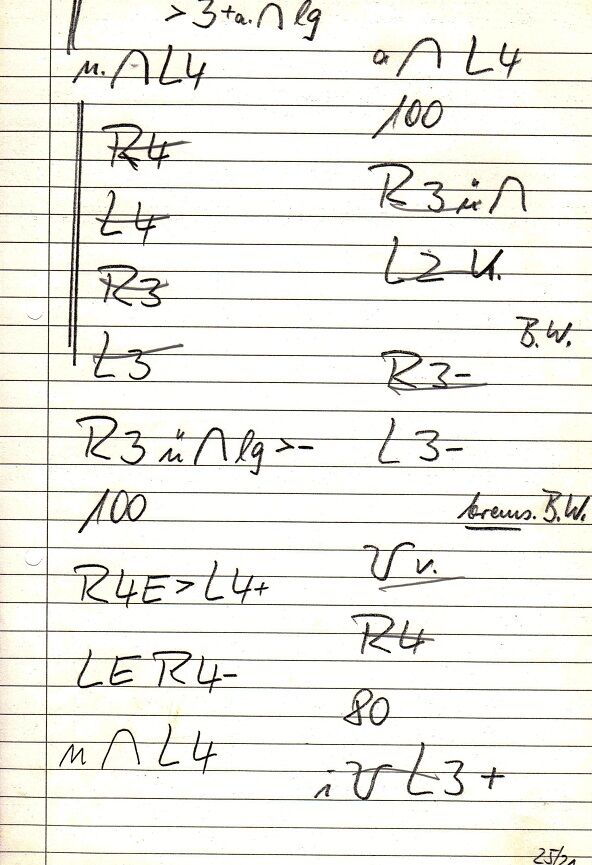 >3+a.∩lg
u.∩L4
R4
L4
R3
L3
R3 ü∩lg>-
100
R4E>L4+
LE R4-
u∩L4
a∩L4
100
R3 ü∩
L2 K.
B.W.
R3-
L3-
brems. B.W.
v.
R4
80
L3+